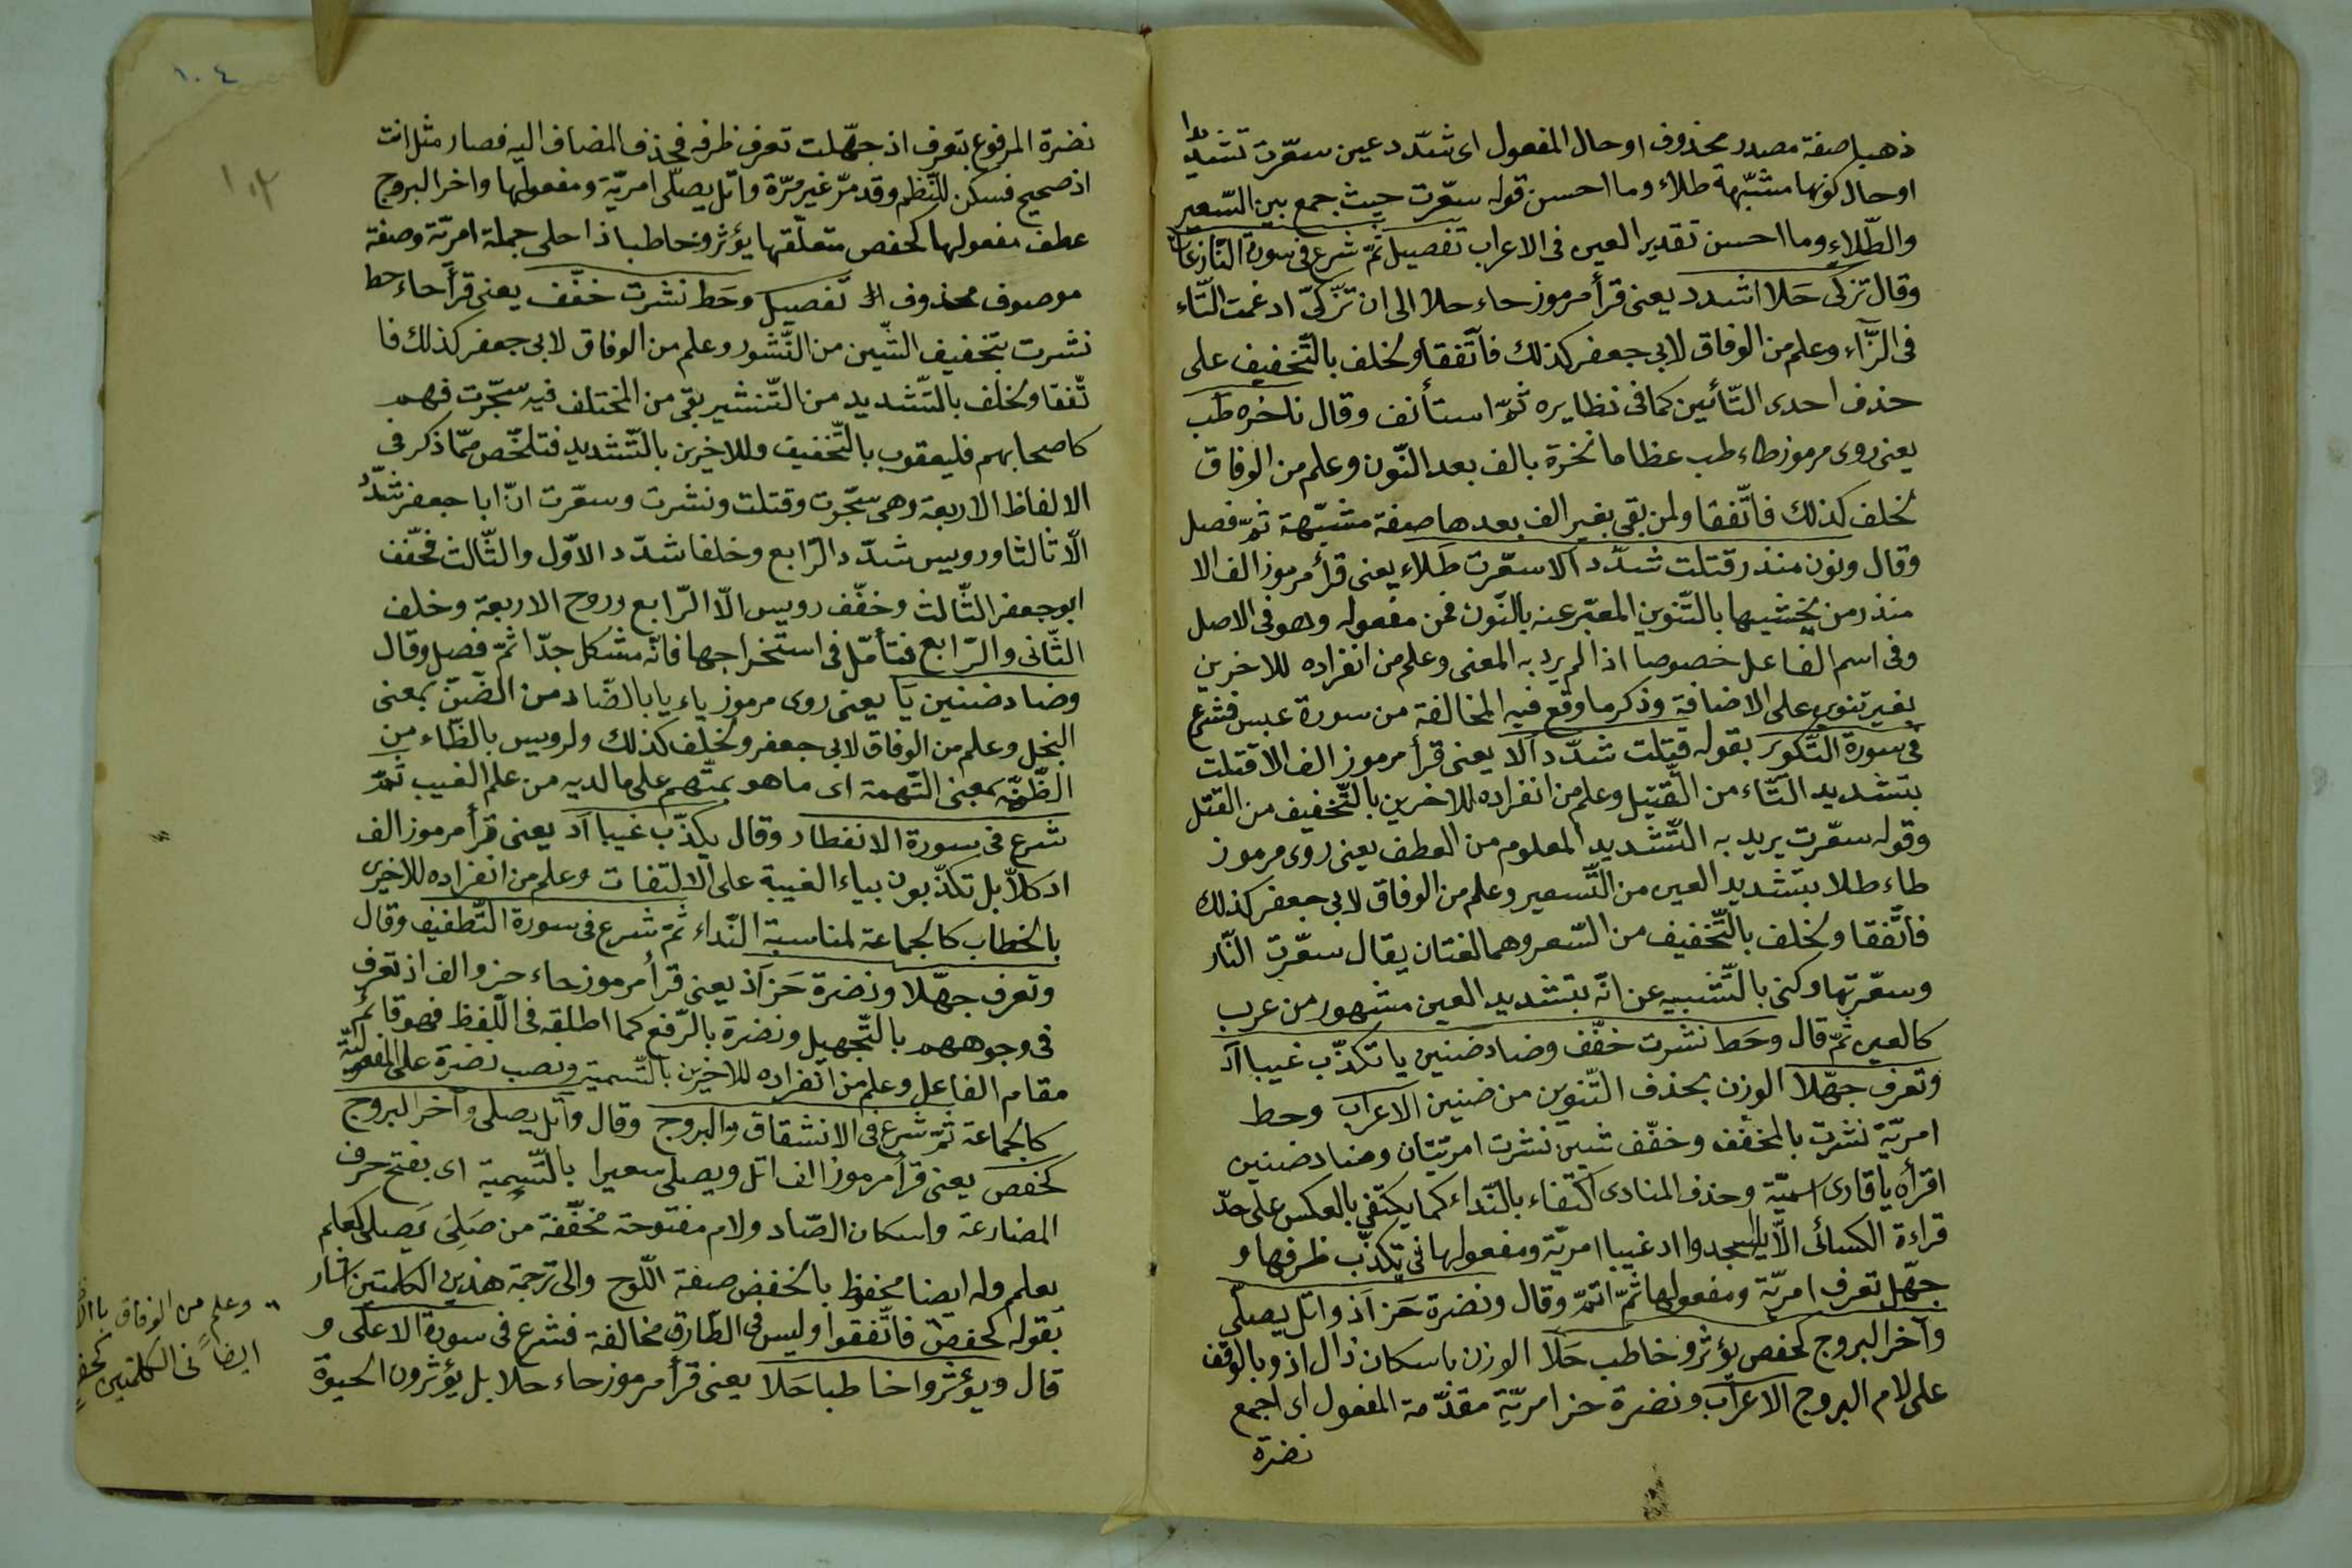 ذهبا صفة مصدر محذوف او حال المفعول اى شدّد عين سعّرت تشديدا
او حال كونها مشبّهة طلاء وما احسن قوله سعّرت حيث جمع بين السّعير
والطّلاء وما احسن تقدير العين فى الاعراب تفصيل ثمّ شرع فى سورة النّازعات
وقال تزكى حَلا اشدد يعنى قرأ مرموز حاء حلا الى ان تزّكّى ادغمت التّاء
فى الزّاء وعلم من الوفاق لابى جعفر كذلك فاتّفقا ولخلف بالتّخفيف على
حذف احدى التّائين كما فى نظايره ثمّ استأنف وقال ناخره طب
يعنى روى مرموز طاء طب عظاما نخرة بالف بعد النّون وعلم من الوفاق
لخلف كذلك فاتّفقا ولمن بقى بغير الف بعدها صفة مشبّهة ثمّ فصل
وقال ونون منذر قتلت شدّد الا سعّرت طلاء يعنى قرأ مرموز الف الا
منذر من يخشيها بالتّنوين المعبّر عنه بالنّون فمن مفعوله وهو فى الاصل
وفى اسم الفاعل خصوصا اذا لم يرد به المعنى وعلم من انفراده للاخرين
بغير تنوين على الاضافة وذكر ما وقع فيه المخالفة من سورة عبس فشرع
فى سورة التّكوير بقوله قتّلت شدّد الا يعنى قرأ مرموز الف الا قتلت
بتشديد التّاء من القتيل وعلم من انفراده للاخرين بالتّخفيف من القتل
وقوله سعّرت يريد به التّشديد المعلوم من العطف يعنى روى مرموز
طاء طلا بتشديد العين من التّسعير وعلم من الوفاق لابى جعفر كذلك
فاتّفقا ولخلف بالتّخفيف من السّعر وهما لغتان يقال سعّرت النّار
وسعّرتها وكنى بالتّشبيه عن انّه بتشديد العين مشهور من عرب
كالعين ثمّ قال وحَط نشرت خفّف وضاد ضنين يا تكذّب غيبا اد
وتعرف جهّلا الوزن بحذف التّنوين من ضنين الاعراب وحط
امريّة نشرت بالمخفّف وخفّف شين نشرت امريّتان وضاد ضنين
اقرأه يا قارى اسميّة وحذف المنادى اكتفاء بالنّداء كما يكتفى بالعكس على حدّ
قراءة الكسائى الّا يا اسجدوا اد غيبا امريّة ومفعولها فى يكذّب ظرفها و
جهّل تعرف امريّة ومفعولها ثمّ اتمّ وقال ونضرة حَز اَذ واتل يصلّى
وآخر البروج كحفص يؤثرو خاطب حَلَا الوزن باسكان ذال اذ وبالوقف
على لام البروج الاعراب ونضرة حز امريّة مقدّمة المفعول اى اجمع
نضرة
١٠٤
نضرة المرفوع بتعرف اذ جهّلت تعرف ظرفه فحذف المضاف اليه فصار مثل انت
اذ صحيح فسكن للنّظم وقد مرّ غير مرّة واتل يصلّى امريّة ومفعولها واخر البروج
عطف مفعولها كحفص متعلّقها يؤثرو خاطبا ذا حلى جملة امريّة وصفة
موصوف محذوف تفصيل وحَط نشرت خفّف يعنى قرأ حاء حط
نشرت بتخفيف الشّين من النّشور وعلم من الوفاق لابى جعفر كذلك فا
تّفقا ولخلف بالتّشديد من التّنشير بقى من المختلف فيه سجّرت فهم
كاصحابهم فليعقوب بالتّخفيف وللاخرين بالتّشديد فتلخّص ممّا ذكر فى
الالفاظ الاربعة وهى سجّرت وقتلت ونشرت وسعّرت انّ ابا جعفر شدّد
الّا ثالثا ورويس شدّد الرّابع وخلفا شدّد الاوّل والثّالث فخفّف
ابو جعفر الثّالث وخفّف رويس الّا الرّابع وروح الاربعة وخلف
الثّانى والرّابع فتأمّل فى استخراجها فانّه مشكل جدّا ثمّ فصل وقال
وضاد ضنين يَا يعنى روى مرموز ياء يا بالضّاد من الضّنّ بمعنى
البخل وعلم من الوفاق لابى جعفر ولخلف كذلك ولرويس بالظّاء من
الظّنّة بمعنى التّهمة اى ما هو بمتّهم على ما لديه من علم الغيب ثمّ
شرع فى سورة الانفطار وقال يكذّب غيبا اَد يعنى قرأ مرموز الف
اد كلّا بل تكذّبون بياء الغيبة على الالتفات وعلم من انفراده للاخرى
بالخطاب كالجماعة لمناسبة النّداء ثمّ شرع فى سورة التّطفيف وقال
وتعرف جهّلا ونضرة حَز اَذ يعنى قرأ مرموز حاء حز والف اذ تعرف
فى وجوههم بالتّجهيل ونضرة بالرّفع كما اطلقه فى اللّفظ فهو قائم
مقام الفاعل وعلم من انفراده للاخرين بالتّسمية ونصب نضرة على المفعوليّة
كالجماعة ثمّ شرع فى الانشقاق والبروج وقال واتل يصلى وآخر البروج
كحفص يعنى قرأ مرموز الف اتل ويصلى سعيرا بالتّسمية اى بفتح حرف
المضارعة واسكان الصّاد ولام مفتوحة مخفّفة من صَلِىَ يَصلى كعلم
يعلم وله ايضا محفوظ بالخفض صفة اللّوح والى ترجمة هذين الكلمتين اشار
بقوله كحفص فاتّفقوا وليس فى الطّارق مخالفة فشرع فى سورة الاعلى و
قال ويؤثروا خاطبا حَلا يعنى قرأ مرموز حاء حلا بل يؤثرون الحيوة
وعلم من الوفاق
ايضاً فى الكلمتين